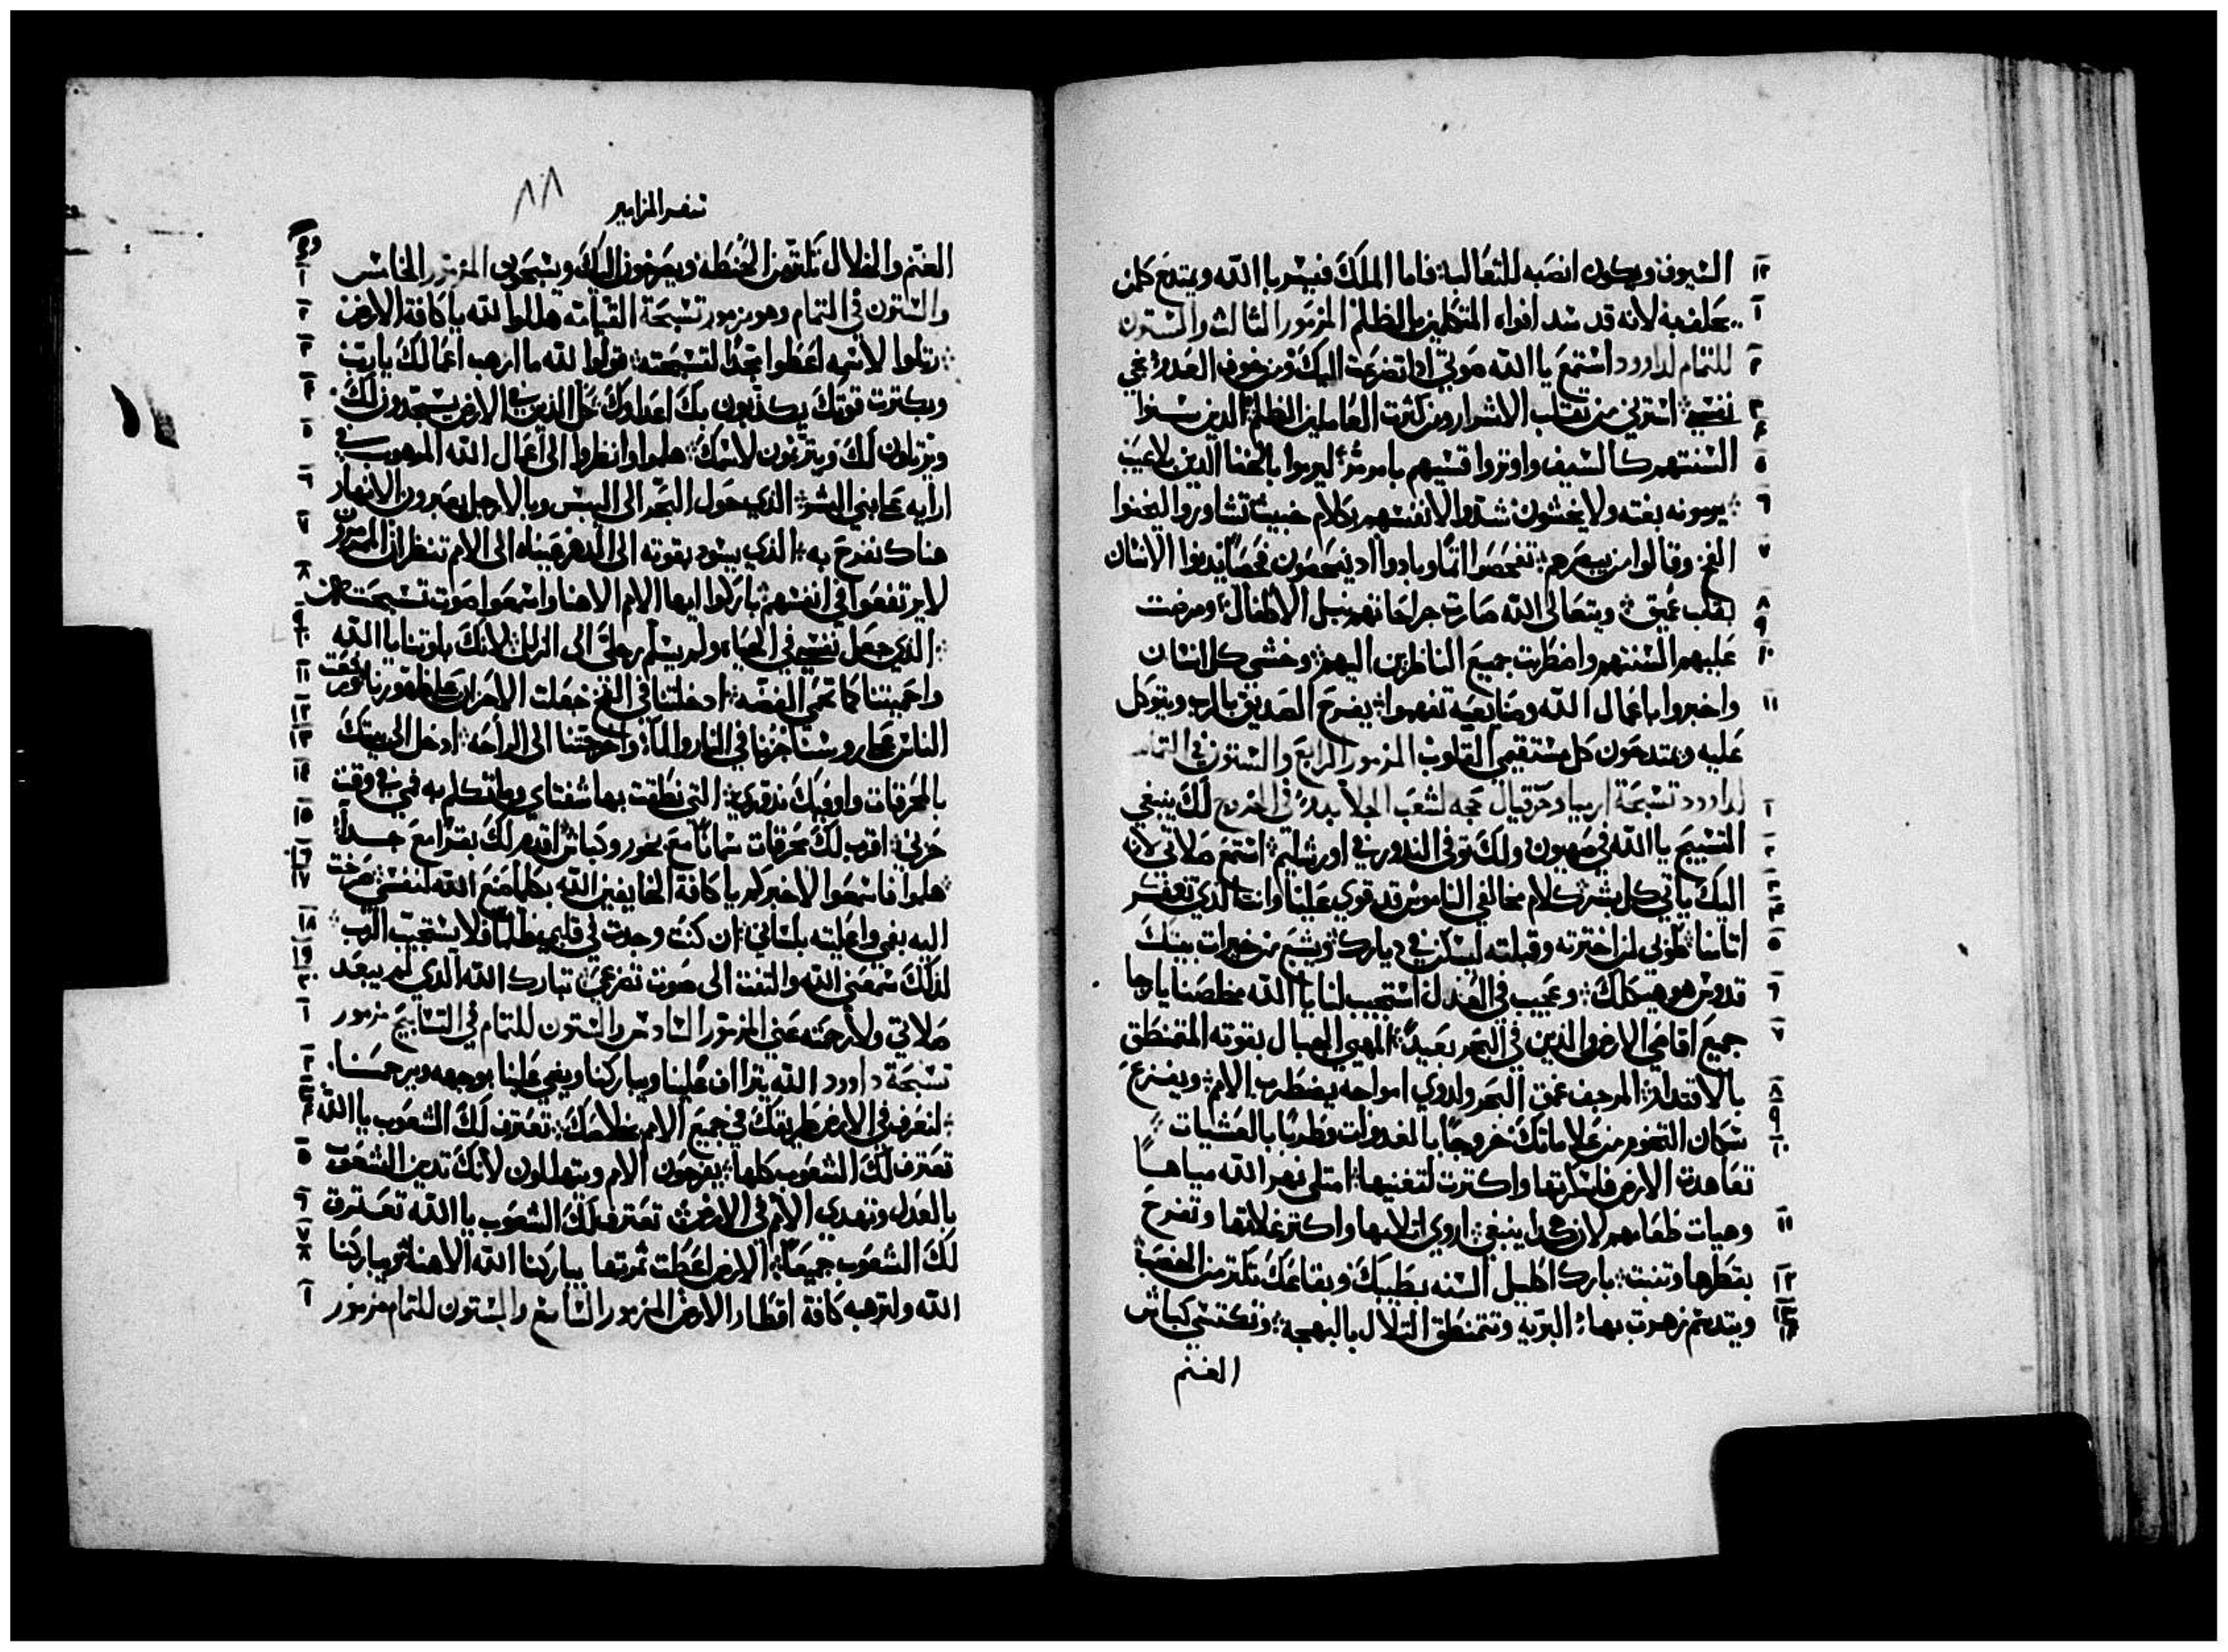 السيوف ويكون انصبه للثعالب: فاما الملك فيسر باالله ويمتدح كلمن ١٢
يحلف به لانه قد سد افواه المتكلمين بالظلم المزمور الثالث والستون ١
للتمام لداوود استمع ياالله صوتي اذا تضرعت اليك ومن خوف العدو نجي ٢
نفسي استرني من تقلب الاشرار ومن كثرت العاملين الظلم الذين سنوا ٣ ٤
السنتهم كالسيف واوتروا قسيهم بامر مر ليرموا بالخفا الذين لا عيب ٥
يرمونه بغته ولا يخشون شدوا لانفسهم كلام خبيث تشاوروا ليخفوا ٦
الفخ وقالوا من يبصرهم تفحصوا اثما وبادوا اذ يفحصون فحصا يدنوا الانسان ٧
بقلب عميق ويتعالى الله صارت جراحاتهم نبل الاطفال ومرضت ٨ ٩
عليهم السنتهم واضطربت جميع الناظرين اليهم وخشي كل انسان ١٠
واخبروا باعمال الله وصنايعه تفهموا يفرح الصديق بالرب ويتوكل ١١
عليه ويمتدحون كل مستقيمي القلوب المزمور الرابع والستون في التمام
لداوود تسبحة ارميا وحزقيال لشعب الجلا في الخروج لك ينبغي ١
التسبيح ياالله في صهيون ولك توفى الندور في اورشليم استمع صلاتي لانه ٢
اليك ياتي كل بشر كلام مخالفي الناموس قد قوي علينا وانت الذي تغفر ٣ ٤
اتامنا طوبى لمن اخترته وقبلته ليسكن في ديارك ويشبع من خيرات بيتك ٥
قدوس هو هيكلك وعجيب في العدل استجيب لنا ياالله مخلصنا يارجا ٦
جميع اقاصي الارض والذين في البحر بعيدا المهيي الجبال بقوته المتمنطق ٧
بالاقتدار المرجف عمق البحر ولدوي امواجه يضطرب الامم ويفزع ٨
سكان التخوم من علاماتك خروجا بالغدوات وطربا بالعشيات ٩ ١٠
تعاهدت الارض فاسكرتها واكترت لتغنيها امتلى نهر الله مياها
وهيات طعامهم لان هكذا ينبغي اروي اتلامها واكتر غلاتها وتفرح ١١
بقطرها وتنبت بارك اكليل السنه بطيبك وبقاعك تلتز من الخصب ١٢
ويتدسم زهوت بهاء البريه وتتمنطق التلال بالبهجة وتكتسي كباش ١٣ ١٤
الغنم
سفر المزامير
٨٨
الغنم والغلال تلتز من الحنطه ويصرخون اليك ويسبحون المزمور الخامس ١
والستون في التمام وهو مزمور تسبحة القيامه هللوا لله ياكافة الارض ٢
رتلوا لاسمه اعطوا مجدا لتسبحته قولوا لله ما ارهب اعمالك يارب ٣
وبكترت قوتك يكدبون بك اعداوك كل الذين في الارض يسجدون لك ٤
ويرتلون لك ويترنمون لاسمك هلموا وانظروا الى اعمال الله المرهوب في ٥
ارايه على بني البشر الذي حول البحر الى اليبس وبالارجل يعبرون الانهار ٦
هناك نفرح به الذي يسود بقوته الى الدهر عيناه الى الامم تنظران المرمرون ٧
لا يرتفعوا في انفسهم باركوا ايها الامم الاهنا واسمعوا صوت تسبحته ٨
الذي جعل نفسي في الحياه ولم يسلم رجلي الى الزلل لانك بلوتنا ياالله ٩ ١٠
واحميتنا كما تحمي الفضه ادخلتنا في الفخ جعلت الاحزان على ظهورنا ١١
الناس على روسنا جزنا في النار والماء واخرجتنا الى الراحه ادخل الى بيتك ١٢ ١٣
بالمحرقات واوفيك ندوري التي نطقت بها شفتاي وما تكلم به فمي في وقت ١٤
حزني اقرب لك محرقات سمانا مع بخور وكباش اقدم لك بقرا مع جدا ١٥
هلموا فاسمعوا لاخبركم ياكافة الخايفين الله بكلما صنع الله لنفسي صرخت ١٦ ١٧
اليه بفمي واعليته بلساني ان كنت وجدت في قلبي ظلما فلا يستجيب الرب ١٨
لذلك سمعني الله والتفت الى صوت تضرعي تبارك الله الذي لم يبعد ١٩ ٢٠
صلاتي ولا رحمته عني المزمور السادس والستون للتمام في التسابيح مزمور ١
تسبحة داوود الله يتراف علينا ويباركنا ويضي علينا بوجهه ويرحمنا ٢
لنعرف في الارض طريقك في جميع الامم خلاصك تعترف لك الشعوب ياالله ٣ ٤
تعترف لك الشعوب كلها يفرحون الامم ويتهللون لانك تدين الشعوب ٥
بالعدل وتهدي الامم في الارض تعترف لك الشعوب ياالله تعترف ٦
لك الشعوب جميعا الارض اعطت تمرتها يباركنا الله الاهنا يباركنا ٧ ٨
الله ولترهبه كافة اقطار الارض المزمور السابع والستون للتمام مزمور ١